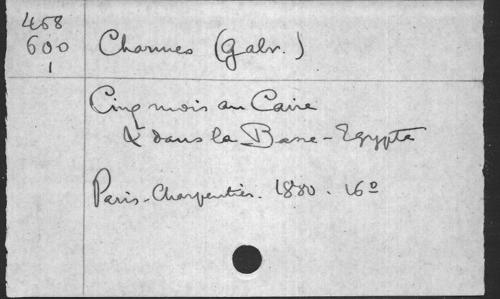 468
600
1
Charmes (Gabr.)
Cinq mois au Caire
& dans la Basse-Egypte
Paris-Charpentier. 1880. 16º